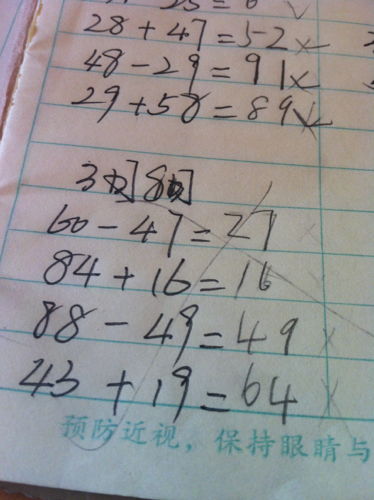 28+47=52
48-29=91
29+58=89
3月8日
60-47=27
84+16=16
88-49=49
43+19=64
预防近视，保持眼睛与